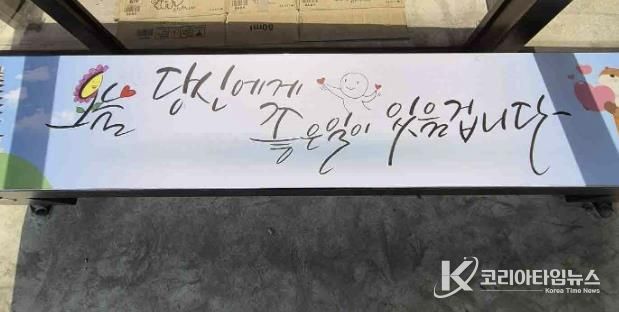 오늘 당신에게
좋은일이 있을겁니다
K 코리아타임뉴스
Korea Time News